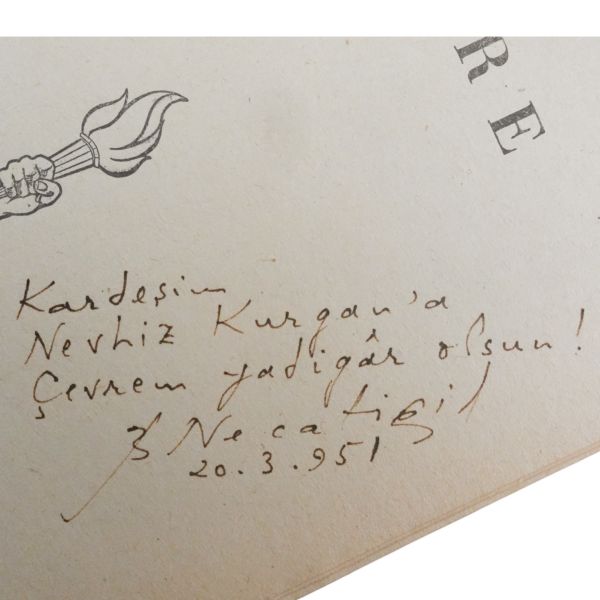 RE
Kardeşim
Nevhiz Kurgan'a
Çevrem yadigâr olsun!
B Necatigil
20.3.951